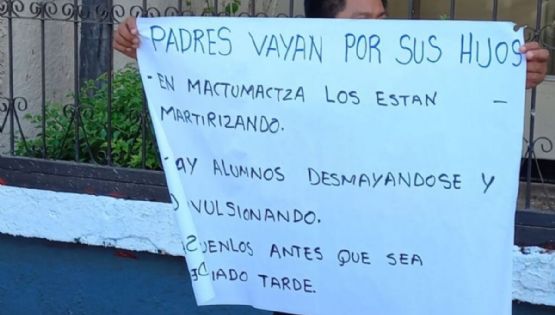 PADRES VAYAN POR SUS HIJOS
- EN MACTUMACTZA LOS ESTAN -
MARTIRIZANDO.
AY ALUMNOS DESMAYANDOSE Y
VULSIONANDO.
ANTES QUE SEA
TARDE.